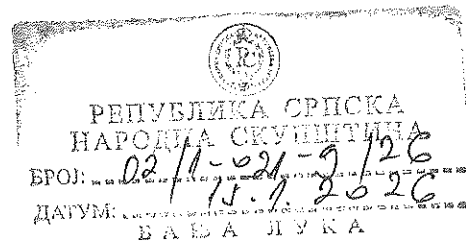 РЕПУБЛИКА СРПСКА
НАРОДНА СКУПШТИНА
БРОЈ: 02/1-021-9/26
ДАТУМ: 15.1.2026
БАЊА ЛУКА